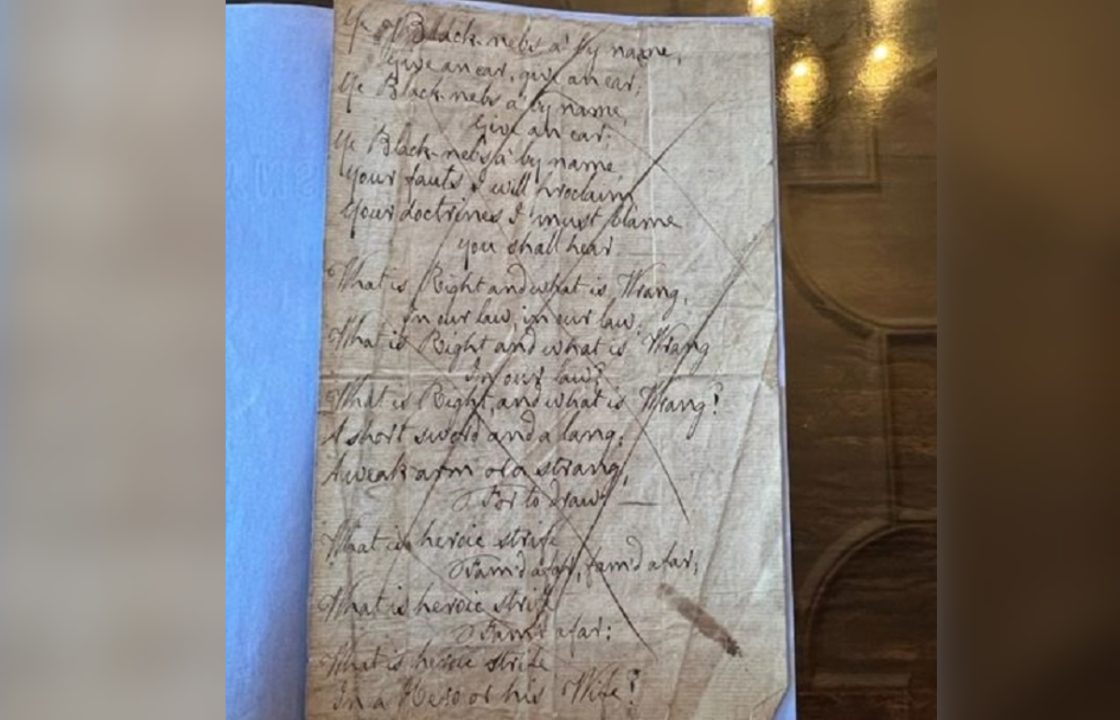 Ye Black-nebs a' by name,
Give an ear, give an ear;
Ye Black-nebs a' by name,
Give an ear;
Ye Black-nebs a' by name,
Your fauts I will proclaim
Your doctrines I must blame
You shall hear
What is Right and what is Wrang,
In our law, in our law;
What is Right and what is Wrang
In our law?
What is Right, and what is Wrang?
A short sword and a lang;
A weak arm or a strang,
For to draw?
What is heroic strife
Fam'd afar, fam'd afar;
What is heroic strife
Fam'd afar;
What is heroic strife
In a Hero or his Wife?